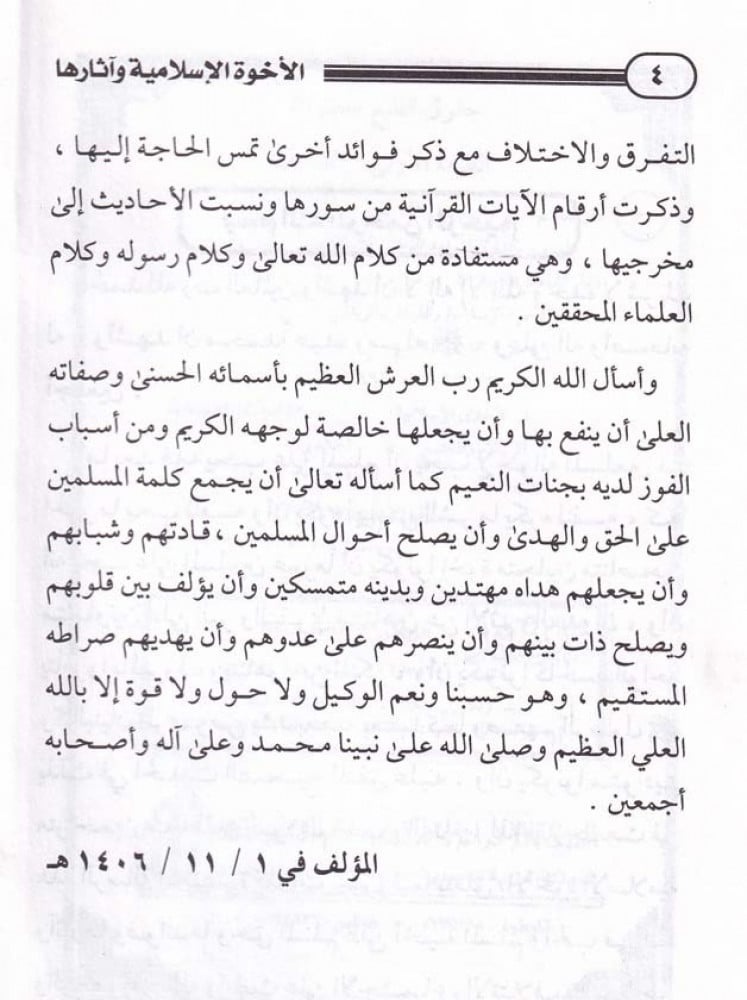 ٤ الأخوة الإسلامية وآثارها
التفرق والاختلاف مع ذكر فوائد أخرىٰ تمس الحاجة إليها ،
وذكرت أرقام الآيات القرآنية من سورها ونسبت الأحاديث إلىٰ
مخرجيها ، وهي مستفادة من كلام الله تعالىٰ وكلام رسوله وكلام
العلماء المحققين .
وأسأل الله الكريم رب العرش العظيم بأسمائه الحسنىٰ وصفاته
العلىٰ أن ينفع بها وأن يجعلها خالصة لوجهه الكريم ومن أسباب
الفوز لديه بجنات النعيم كما أسأله تعالىٰ أن يجمع كلمة المسلمين
علىٰ الحق والهدىٰ وأن يصلح أحوال المسلمين ، قادتهم وشبابهم
وأن يجعلهم هداه مهتدين وبدينه متمسكين وأن يؤلف بين قلوبهم
ويصلح ذات بينهم وأن ينصرهم علىٰ عدوهم وأن يهديهم صراطه
المستقيم ، وهو حسبنا ونعم الوكيل ولا حول ولا قوة إلا بالله
العلي العظيم وصلىٰ الله علىٰ نبينا محمد وعلىٰ آله وأصحابه
أجمعين .
المؤلف في ١ / ١١ / ١٤٠٦ هـ